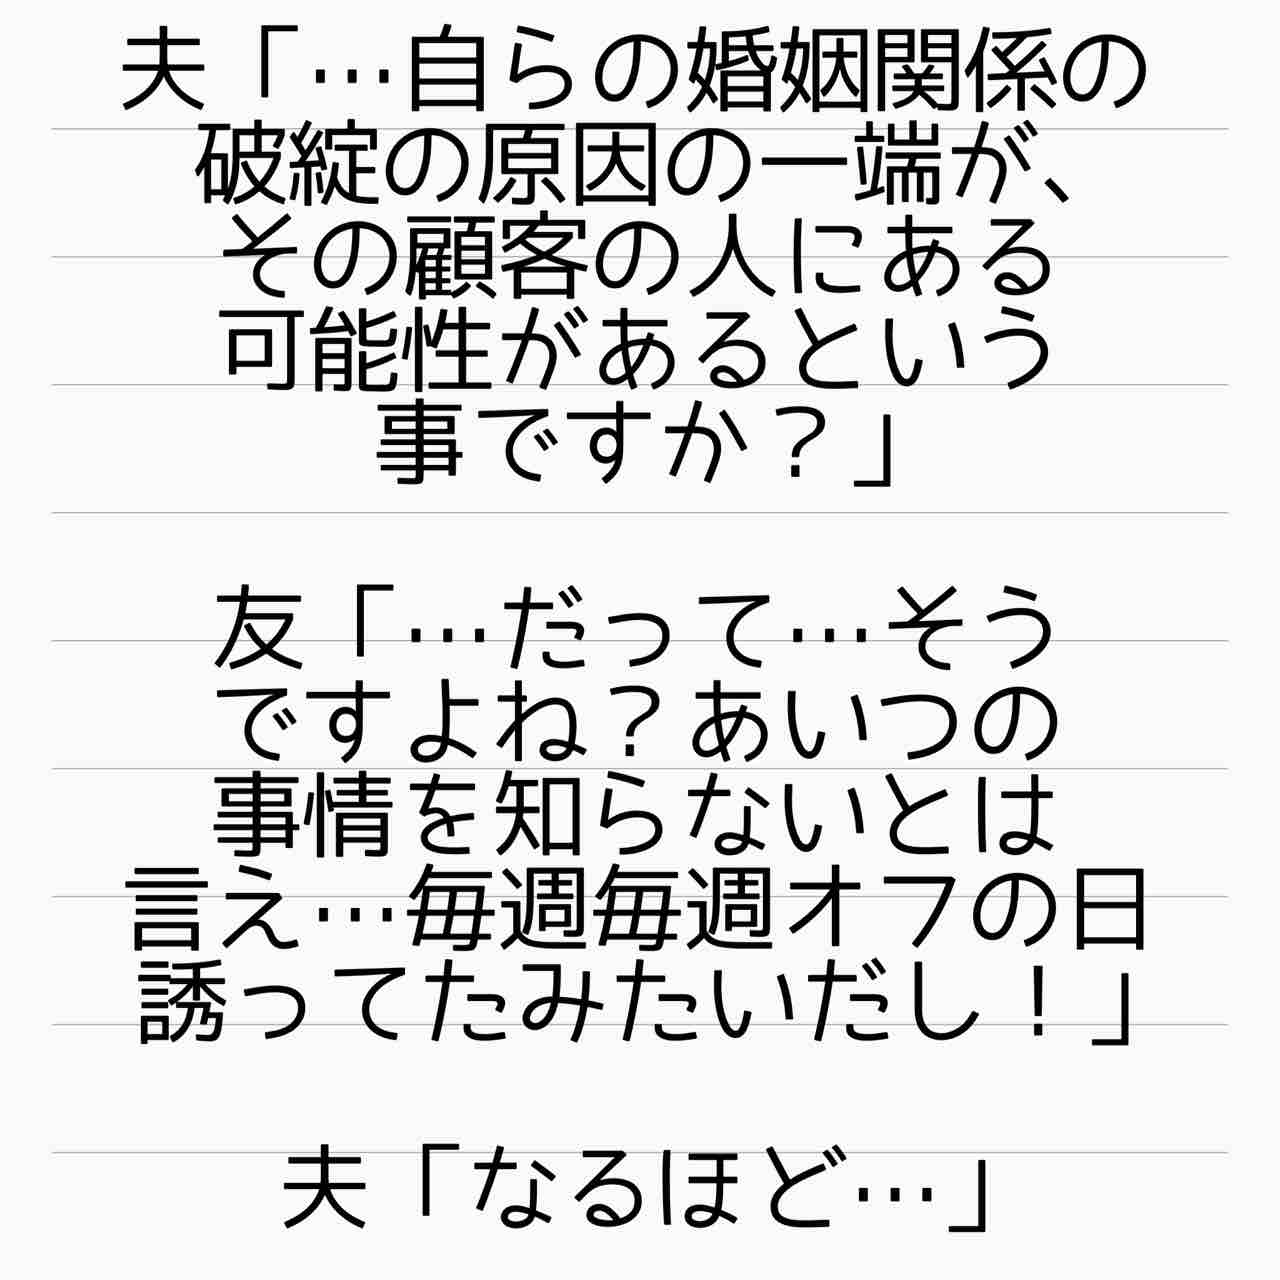 夫「…自らの婚姻関係の
破綻の原因の一端が、
その顧客の人にある
可能性があるという
事ですか？」
友「…だって…そう
ですよね？あいつの
事情を知らないとは
言え…毎週毎週オフの日
誘ってたみたいだし！」
夫「なるほど…」